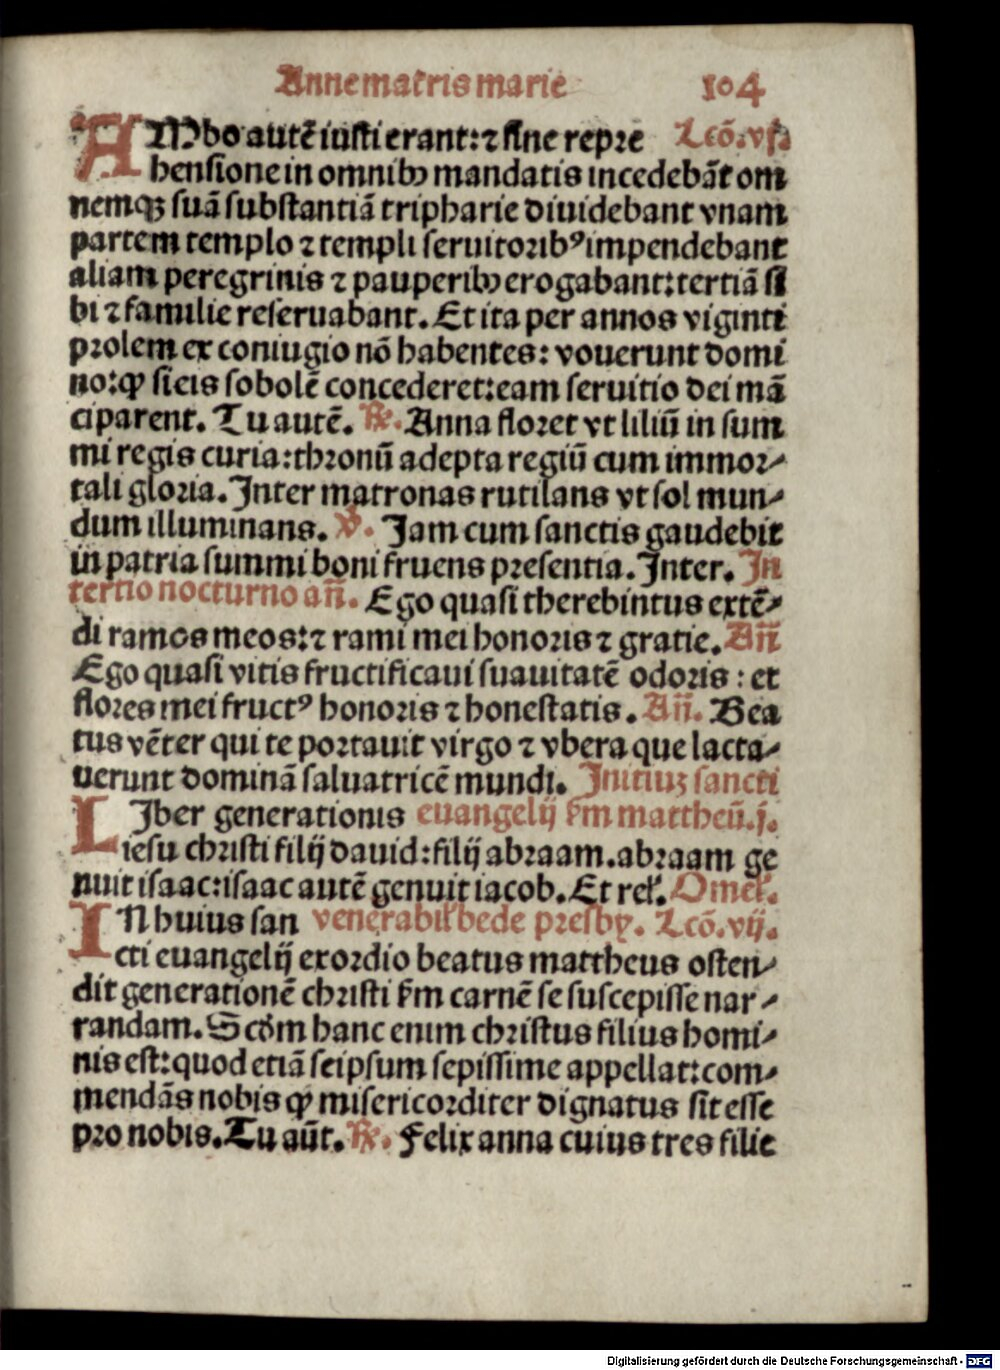 Anne matris marie 104
AMbo autē iusti erant: ⁊ sine repre Lcō. vj.
hensione in omnibꝰ mandatis incedebāt om
nemqꝫ suā substantiā tripharie diuidebant vnam
partem templo ⁊ templi seruitoribꝰ impendebant
aliam peregrinis ⁊ pauperibꝰ erogabant: tertiā si
bi ⁊ familie reseruabant. Et ita per annos viginti
prolem ex coniugio nō habentes: vouerunt domi
no: ꝙ si eis sobolē concederet: eam seruitio dei mā
ciparent. Tu autē. ℞. Anna floret vt liliū in sum
mi regis curia: thronū adepta regiū cum immor⸗
tali gloria. Inter matronas rutilans vt sol mun⸗
dum illuminans. ℣. Jam cum sanctis gaudebit
in patria summi boni fruens presentia. Inter. In
tertio nocturno añ. Ego quasi therebintus extē⸗
di ramos meos: ⁊ rami mei honoris ⁊ gratie. Añ
Ego quasi vitis fructificaui suauitatē odoris: et
flores mei fructꝰ honoris ⁊ honestatis. Añ. Bea
tus vēter qui te portauit virgo ⁊ vbera que lacta⸗
uerunt dominā saluatricē mundi. Initiuꝫ sancti
LIber generationis euangelij ẜm mattheū. j.
iesu christi filij dauid: filij abraam. abraam ge
nuit isaac: isaac autē genuit iacob. Et rel. Omel.
IN huius san venerabil bede presby. Lcō. vij.
cti euangelij exordio beatus mattheus osten⸗
dit generationē christi ẜm carnē se suscepisse nar⸗
randam. Scdm hanc enim christus filius homi⸗
nis est: quod etiā seipsum sepissime appellat: com⸗
mendās nobis ꝙ misericorditer dignatus sit esse
pro nobis. Tu aūt. ℞. Felix anna cuius tres filie
Digitalisierung gefördert durch die Deutsche Forschungsgemeinschaft - DFG